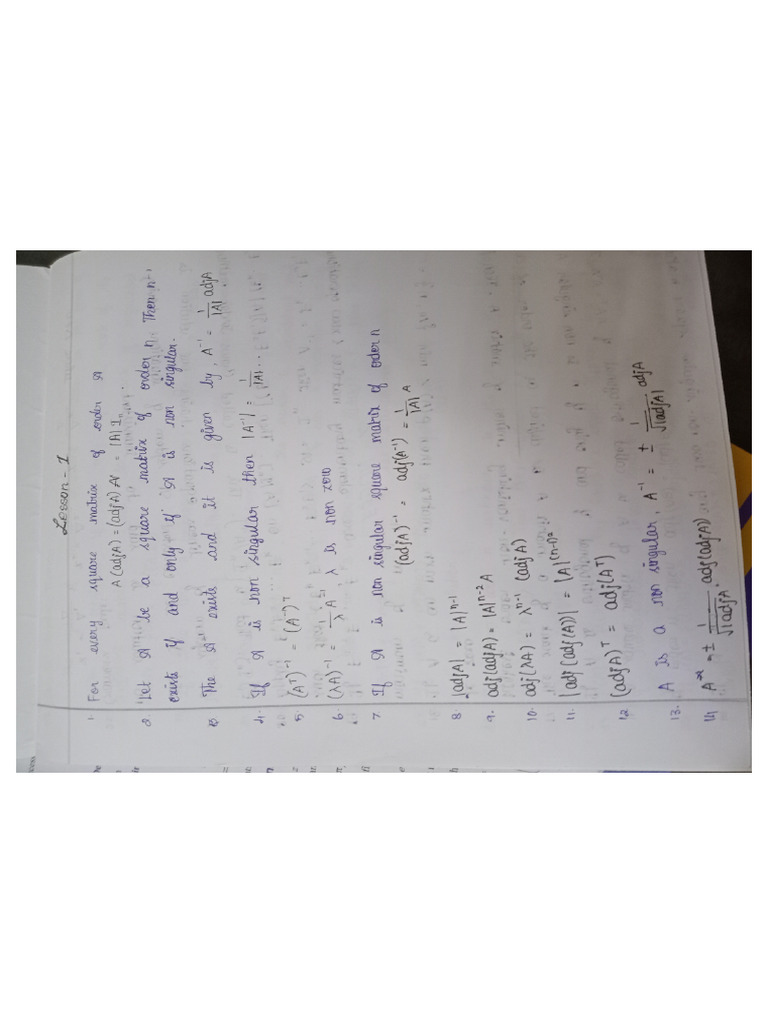 Lesson - 1
1. For every square matrix of order A
A(adjA) = (adjA) A = |A| Iₙ.
2. Let A be a square matrix of order n. Then n⁻¹
exists if and only if A is non singular.
3 The A⁻¹ exists and it is given by, A⁻¹ = 1/|A| adjA
4. If A is non singular then |A⁻¹| = 1/|A| ...
5 (Aᵀ)⁻¹ = (A⁻¹)ᵀ
6. (λA)⁻¹ = 1/λ A⁻¹, λ is non zero
7 If A is non singular square matrix of order n
(adjA)⁻¹ = adj(A⁻¹) = 1/|A| A
8 |adjA| = |A|ⁿ⁻¹
9. adj(adjA) = |A|ⁿ⁻² A
10. adj(λA) = λⁿ⁻¹ (adjA)
11. |adj(adj(A))| = |A|⁽ⁿ⁻¹⁾²
12 (adjA)ᵀ = adj(Aᵀ)
13. A is a non singular, A⁻¹ = ± 1/√|adjA| adjA
14 A = ± 1/√|adjA. adj(adjA)